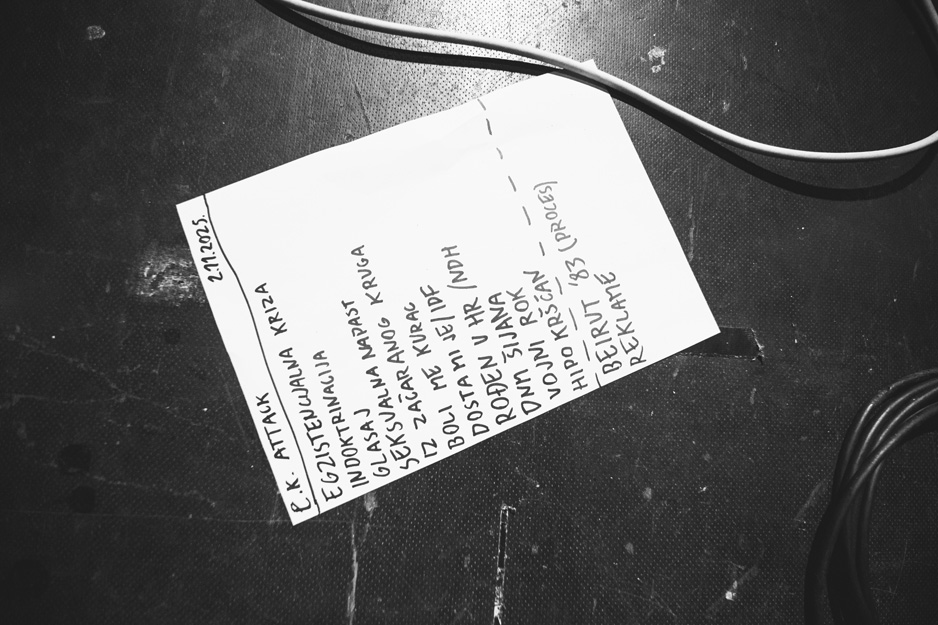 P.K. ATTACK 2.11.2025.
EGZISTENCIJALNA KRIZA
INDOKTRINACIJA
GLASAJ
SEKSUALNA NAPAST
IZ ZAČARANOG KRUGA
BOLI ME KURAC
DOSTA MI JE / IDF
ROĐEN U HR / NDH
DNM ŠIJANA
VOJNI ROK
HIPO KRŠĆAN
BEIRUT '83 (PROCES)
REKLAME